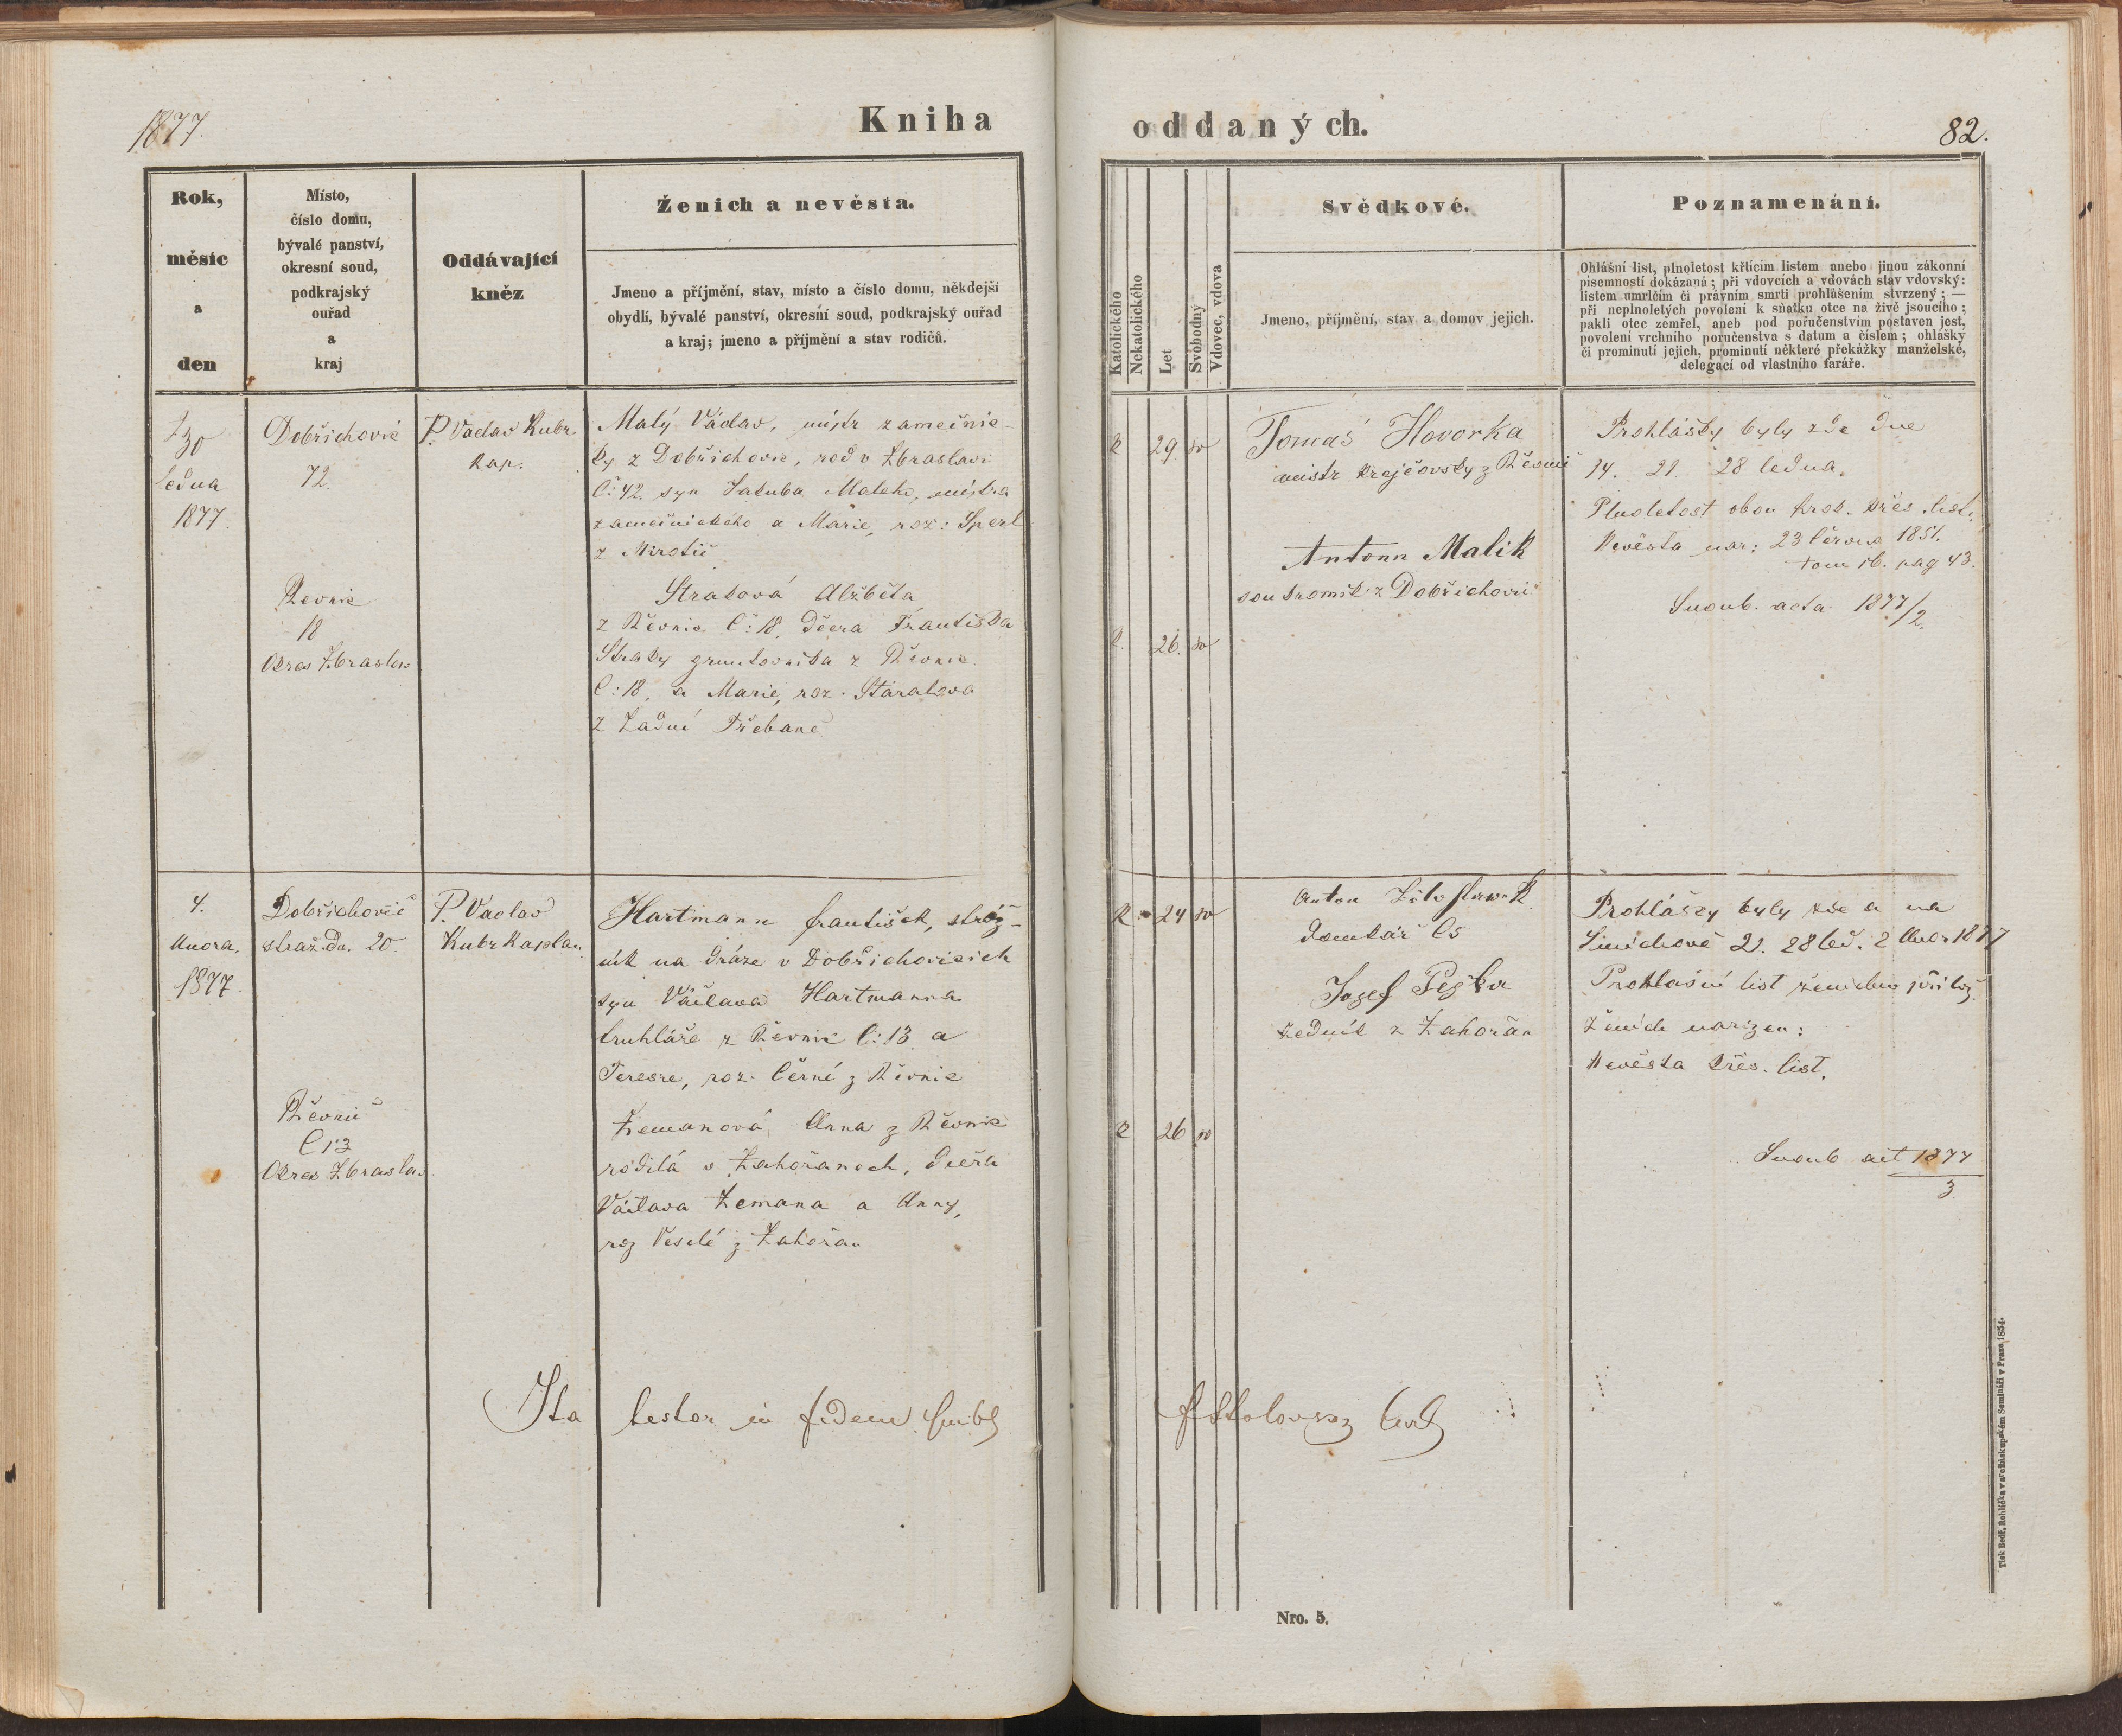 1877.
Kniha
oddaných.
82.
Rok,
měsíc
a
den
Místo,
číslo domu,
bývalé panství,
okresní soud,
podkrajský
ouřad
a
kraj
Oddávající
kněz
Ženich a nevěsta.
Jmeno a příjmění, stav, místo a číslo domu, někdejší
obydlí, bývalé panství, okresní soud, podkrajský ouřad
a kraj; jmeno a příjmění a stav rodičů.
Katolického
Nekatolického
Let
Svobodný
Vdovec, vdova
Svědkové.
Jmeno, příjmění, stav a domov jejich.
Poznamenání.
Ohlášní list, plnoletost křticím listem anebo jinou zákonní
písemností dokázaná; při vdovcích a vdovách stav vdovský:
listem umrlčím či právním smrti prohlášením stvrzený; —
při neplnoletých povolení k sňatku otce na živě jsoucího;
pakli otec zemřel, aneb pod poručenstvím postaven jest,
povolení vrchního poručenstva s datum a číslem; ohlášky
či prominutí jejich, prominutí některé překážky manželské,
delegací od vlastního faráře.
30
Ledna
1877.
Dobřichovic
72
Řevnic
18
Okres Zbraslav
P. Vaclav Kubr
Kap.
Malý Václav, mistr zamečnic-
ky z Dobřichovic, rod v Zbraslavi
Č: 42. syn Jakuba Maleho, mistra
zamečnického a Marie, roz: Sperl
z Mirotic
Straková Alžběta
z Řevnic Č: 18, dcera Františka
Straky gruntovníka z Řevnic
Č: 18, a Marie, roz. Stáralova
z Zadní Třebaně
K 29. sv
K. 26. sv
Tomaš Hovorka
mistr krejčovsky z Řevnic
Antonn Malik
soukromik z Dobřichovic
Prohlášky byly zde dne
14. 21. 28 ledna.
Plnoletost obou křes. list.
Nevěsta nar: 23 června 1851.
tom 16. pag 43.
Snoub. acta 1877/2.
4.
Unora.
1877.
Dobřichovic
straž. do. 20
Řevnic
Č 13
Okres Zbraslav.
P. Vaclav
Kubr Kaplan.
Hartmann František, stráž-
ník na dráze v Dobřichovicich
syn Václava Hartmanna
truhláře z Řevnic Č: 13 a
Teresie, roz. Černé z Řevnic
Zemanová Anna z Řevnic
rodilá v Zahořanech, dcera
Václava Zemana a Anny,
roz Veselé z Zahořan
K 24 sv
K 26 sv
Anton
Domkář Č 5
Josef Peška
zedník z Zahořan
Prohlášky byly zde a na
Smíchově 21. 28 led. 2 Unor 1877
Prohlašní list ženichův přilož.
Ženich
Nevěsta křes. list.
Snoub act 1877
3
Ita testor in fidem
Nro. 5.
Tisk Bedř. Rohlíčka v arcibiskupském Semináři v Praze 1854.